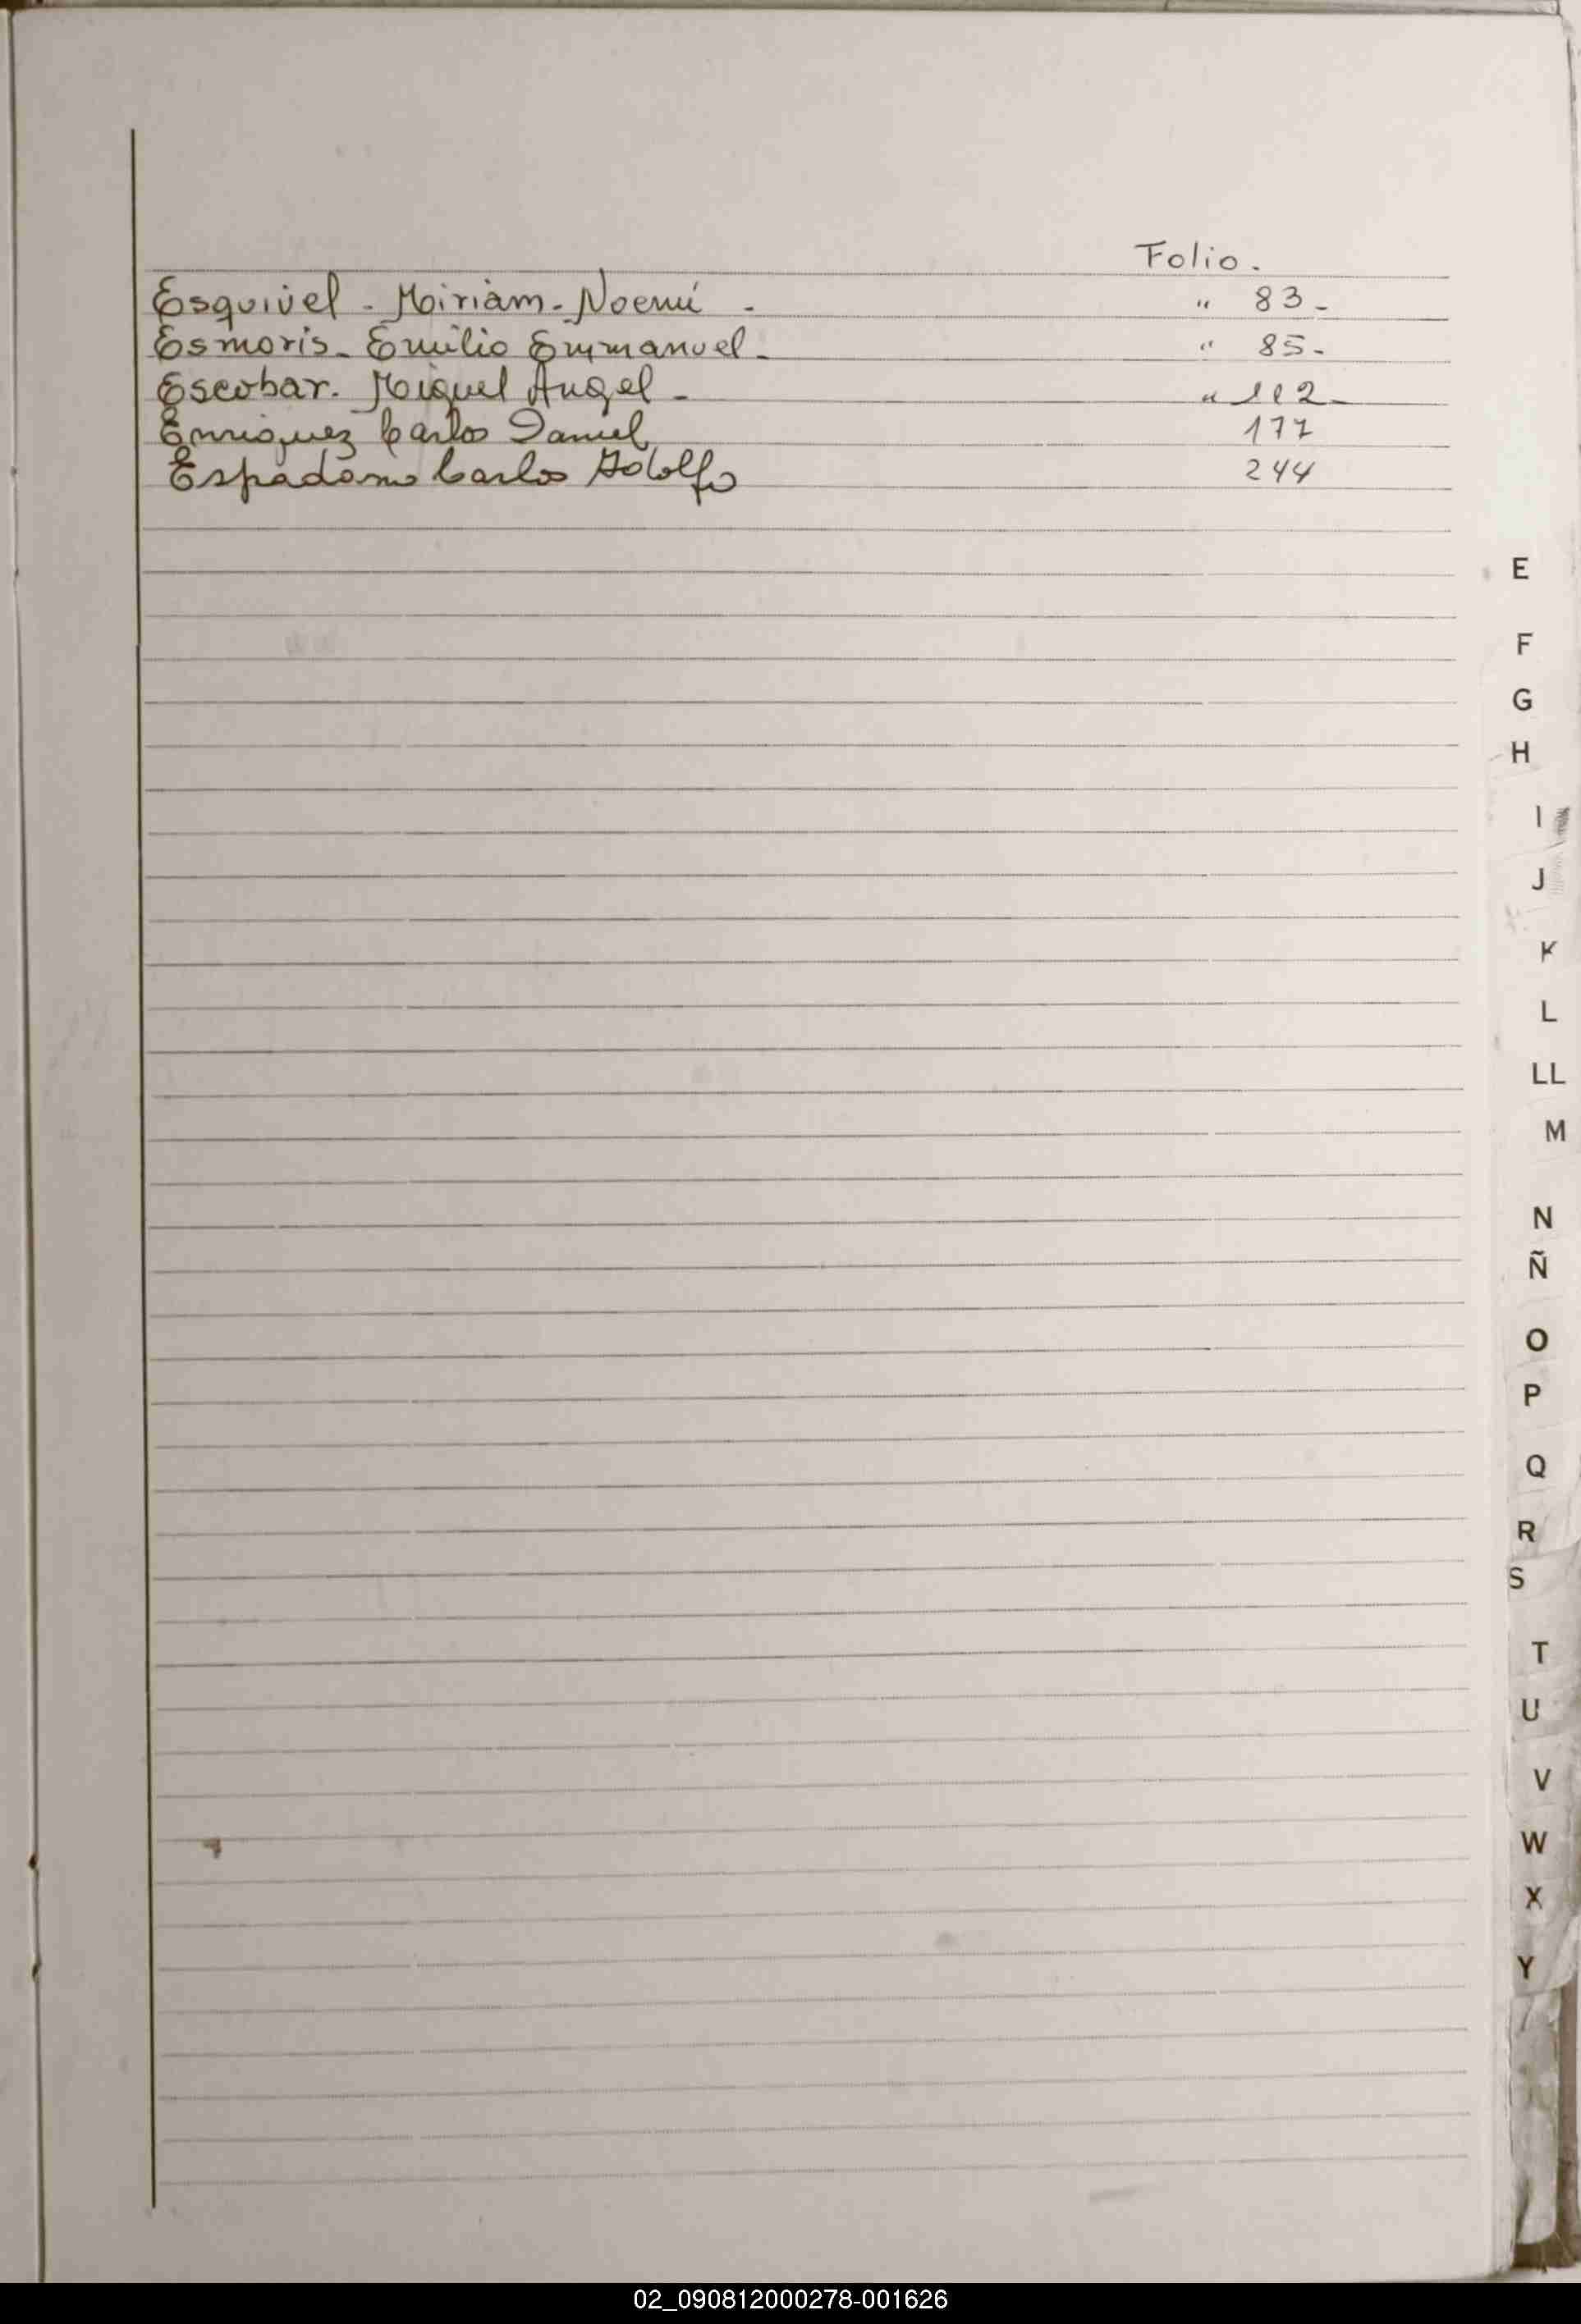 Folio.
Esquivel - Miriam - Noemí - " 83 -
Esmoris - Emilio Emmanuel - " 85 -
Escobar. Miguel Angel - " 112 -
Enriquez Carlos Daniel 177
Espadano Carlos Adolfo 244
E
F
G
H
I
J
K
L
LL
M
N
Ñ
O
P
Q
R
S
T
U
V
W
X
Y
02_090812000278-001626